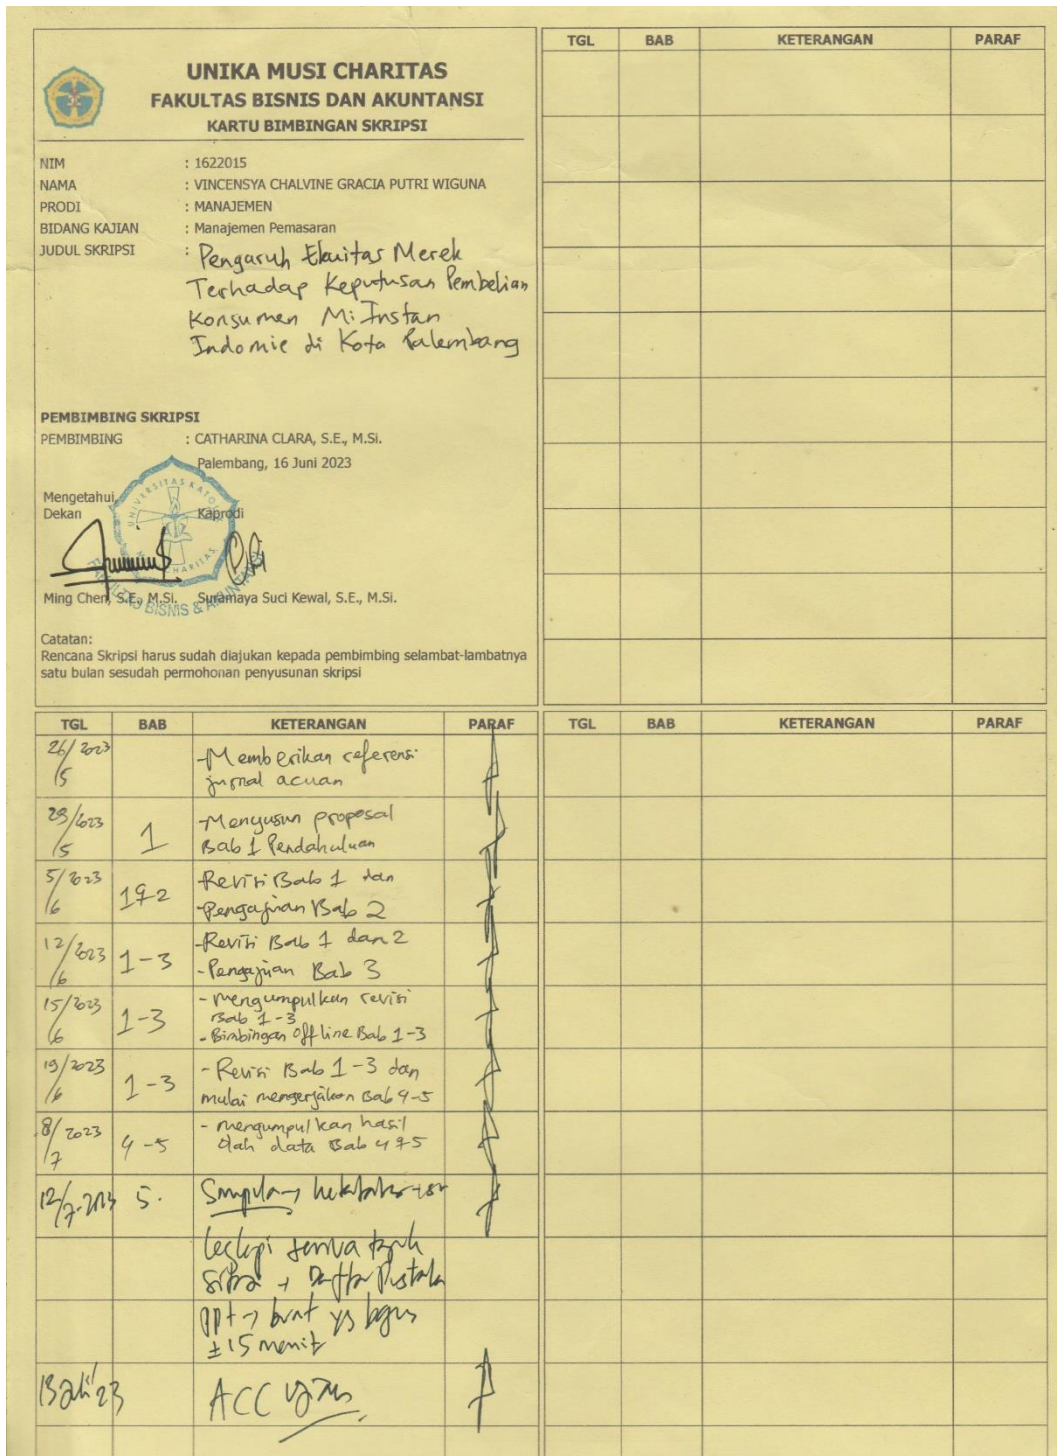 UNIKA MUSI CHARITAS
FAKULTAS BISNIS DAN AKUNTANSI
KARTU BIMBINGAN SKRIPSI
NIM : 1622015
NAMA : VINCENSYA CHALVINE GRACIA PUTRI WIGUNA
PRODI : MANAJEMEN
BIDANG KAJIAN : Manajemen Pemasaran
JUDUL SKRIPSI : Pengaruh Ekuitas Merek
Terhadap Keputusan Pembelian
Konsumen Mi Instan
Indomie di Kota Palembang
PEMBIMBING SKRIPSI
PEMBIMBING : CATHARINA CLARA, S.E., M.Si.
Palembang, 16 Juni 2023
Mengetahui,
Dekan Kaprodi
UNIVERSITAS KATOLIK
CHARITAS
FAKULTAS BISNIS & AKUNTANSI
Ming Chen, S.E., M.Si. Suramaya Suci Kewal, S.E., M.Si.
Catatan:
Rencana Skripsi harus sudah diajukan kepada pembimbing selambat-lambatnya
satu bulan sesudah permohonan penyusunan skripsi
TGL BAB KETERANGAN PARAF
TGL BAB KETERANGAN PARAF
26/5 2023 -Memberikan referensi
jurnal acuan
29/5 2023 1 -Menyusun proposal
Bab 1 Pendahuluan
5/6 2023 1&2 -Revisi Bab 1 dan
-Pengajuan Bab 2
12/6 2023 1-3 -Revisi Bab 1 dan 2
-Pengajuan Bab 3
15/6 2023 1-3 - mengumpulkan revisi
Bab 1-3
- Bimbingan offline Bab 1-3
19/6 2023 1-3 - Revisi Bab 1-3 dan
mulai mengerjakan Bab 4-5
8/7 2023 4-5 - mengumpulkan hasil
olah data Bab 4&5
12/7-2023 5. Simpulan
semua
+ Daftar Pustaka
ppt → buat yg bagus
±15 menit
13 Juli '23 ACC Ujian
TGL BAB KETERANGAN PARAF